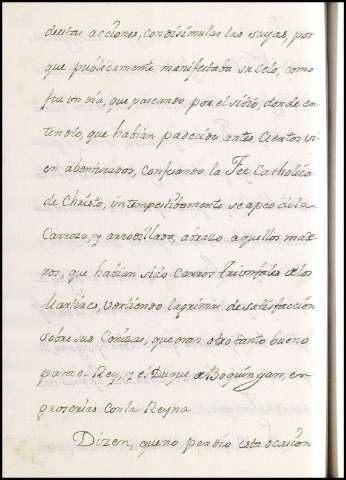 destas acciones, con disimular las suyas, por
que publicamente manifestava su celo, como
fue un dia, que paseando por el sitio, donde en
tendio, que habian padecido antes Ciertos vi
en abenturados, confesando la Fee Catholica
de Christo, intempestibamente se apeo de la
Carroza, y arrodillada, abrazo aquellos
ros, que habian sido Carros triunfales de los
Martires, vertiendo lagrimas de satisfacción
sobre sus Cenizas, que eran otro tanto
para el Rey, y el Duque de Boquingan, en
con la Reyna
Dizen, que no perdio esta ocasion